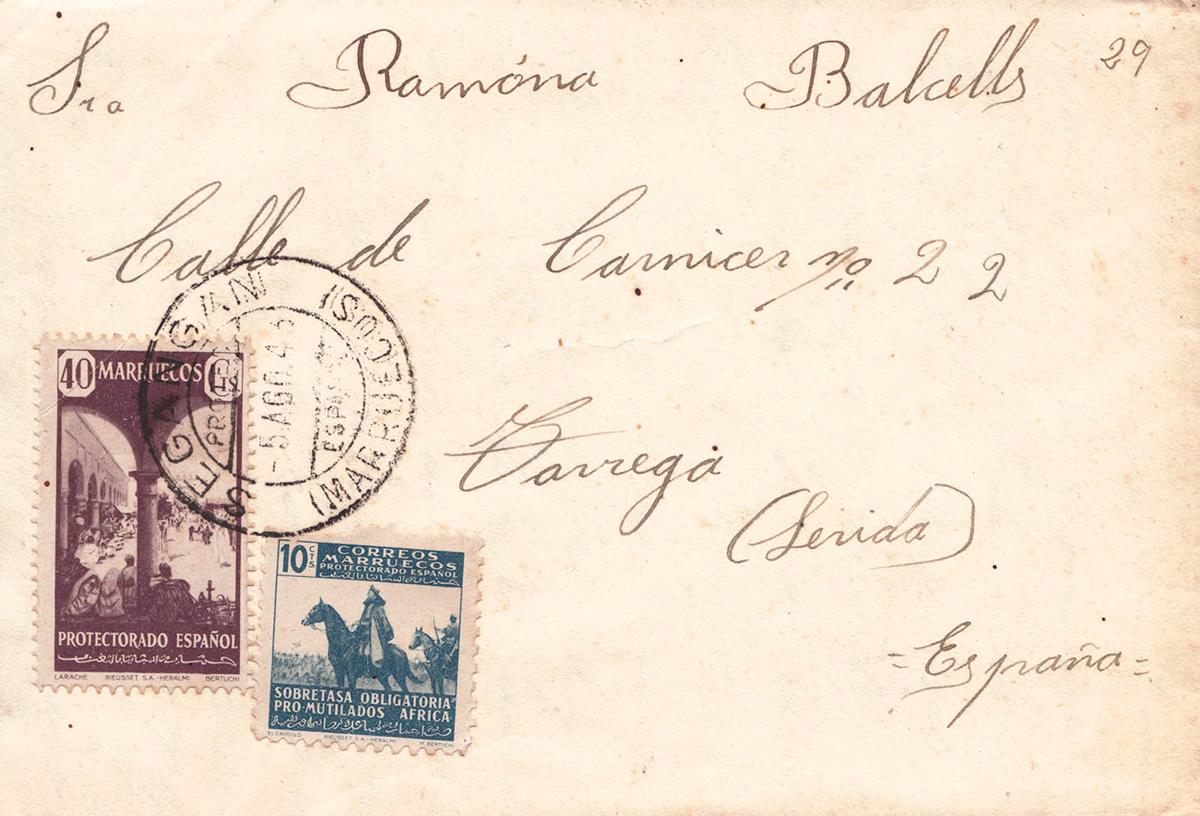 Sra Ramóna Balcells 29
Calle de Carnicer nº 22
Tarrega
(Lerida)
=España=
SEGANGAN (MARRUECOS)
-5 AGO.4
40 MARRUECOS CTS.
PROTECTORADO ESPAÑOL
LARACHE RIEUSSET S.A.-HERALMI BERTUCHI
10 CTS CORREOS
MARRUECOS
PROTECTORADO ESPAÑOL
SOBRETASA OBLIGATORIA
PRO-MUTILADOS AFRICA
EL CAUDILLO RIEUSSET S.A.-HERALMI M. BERTUCHI